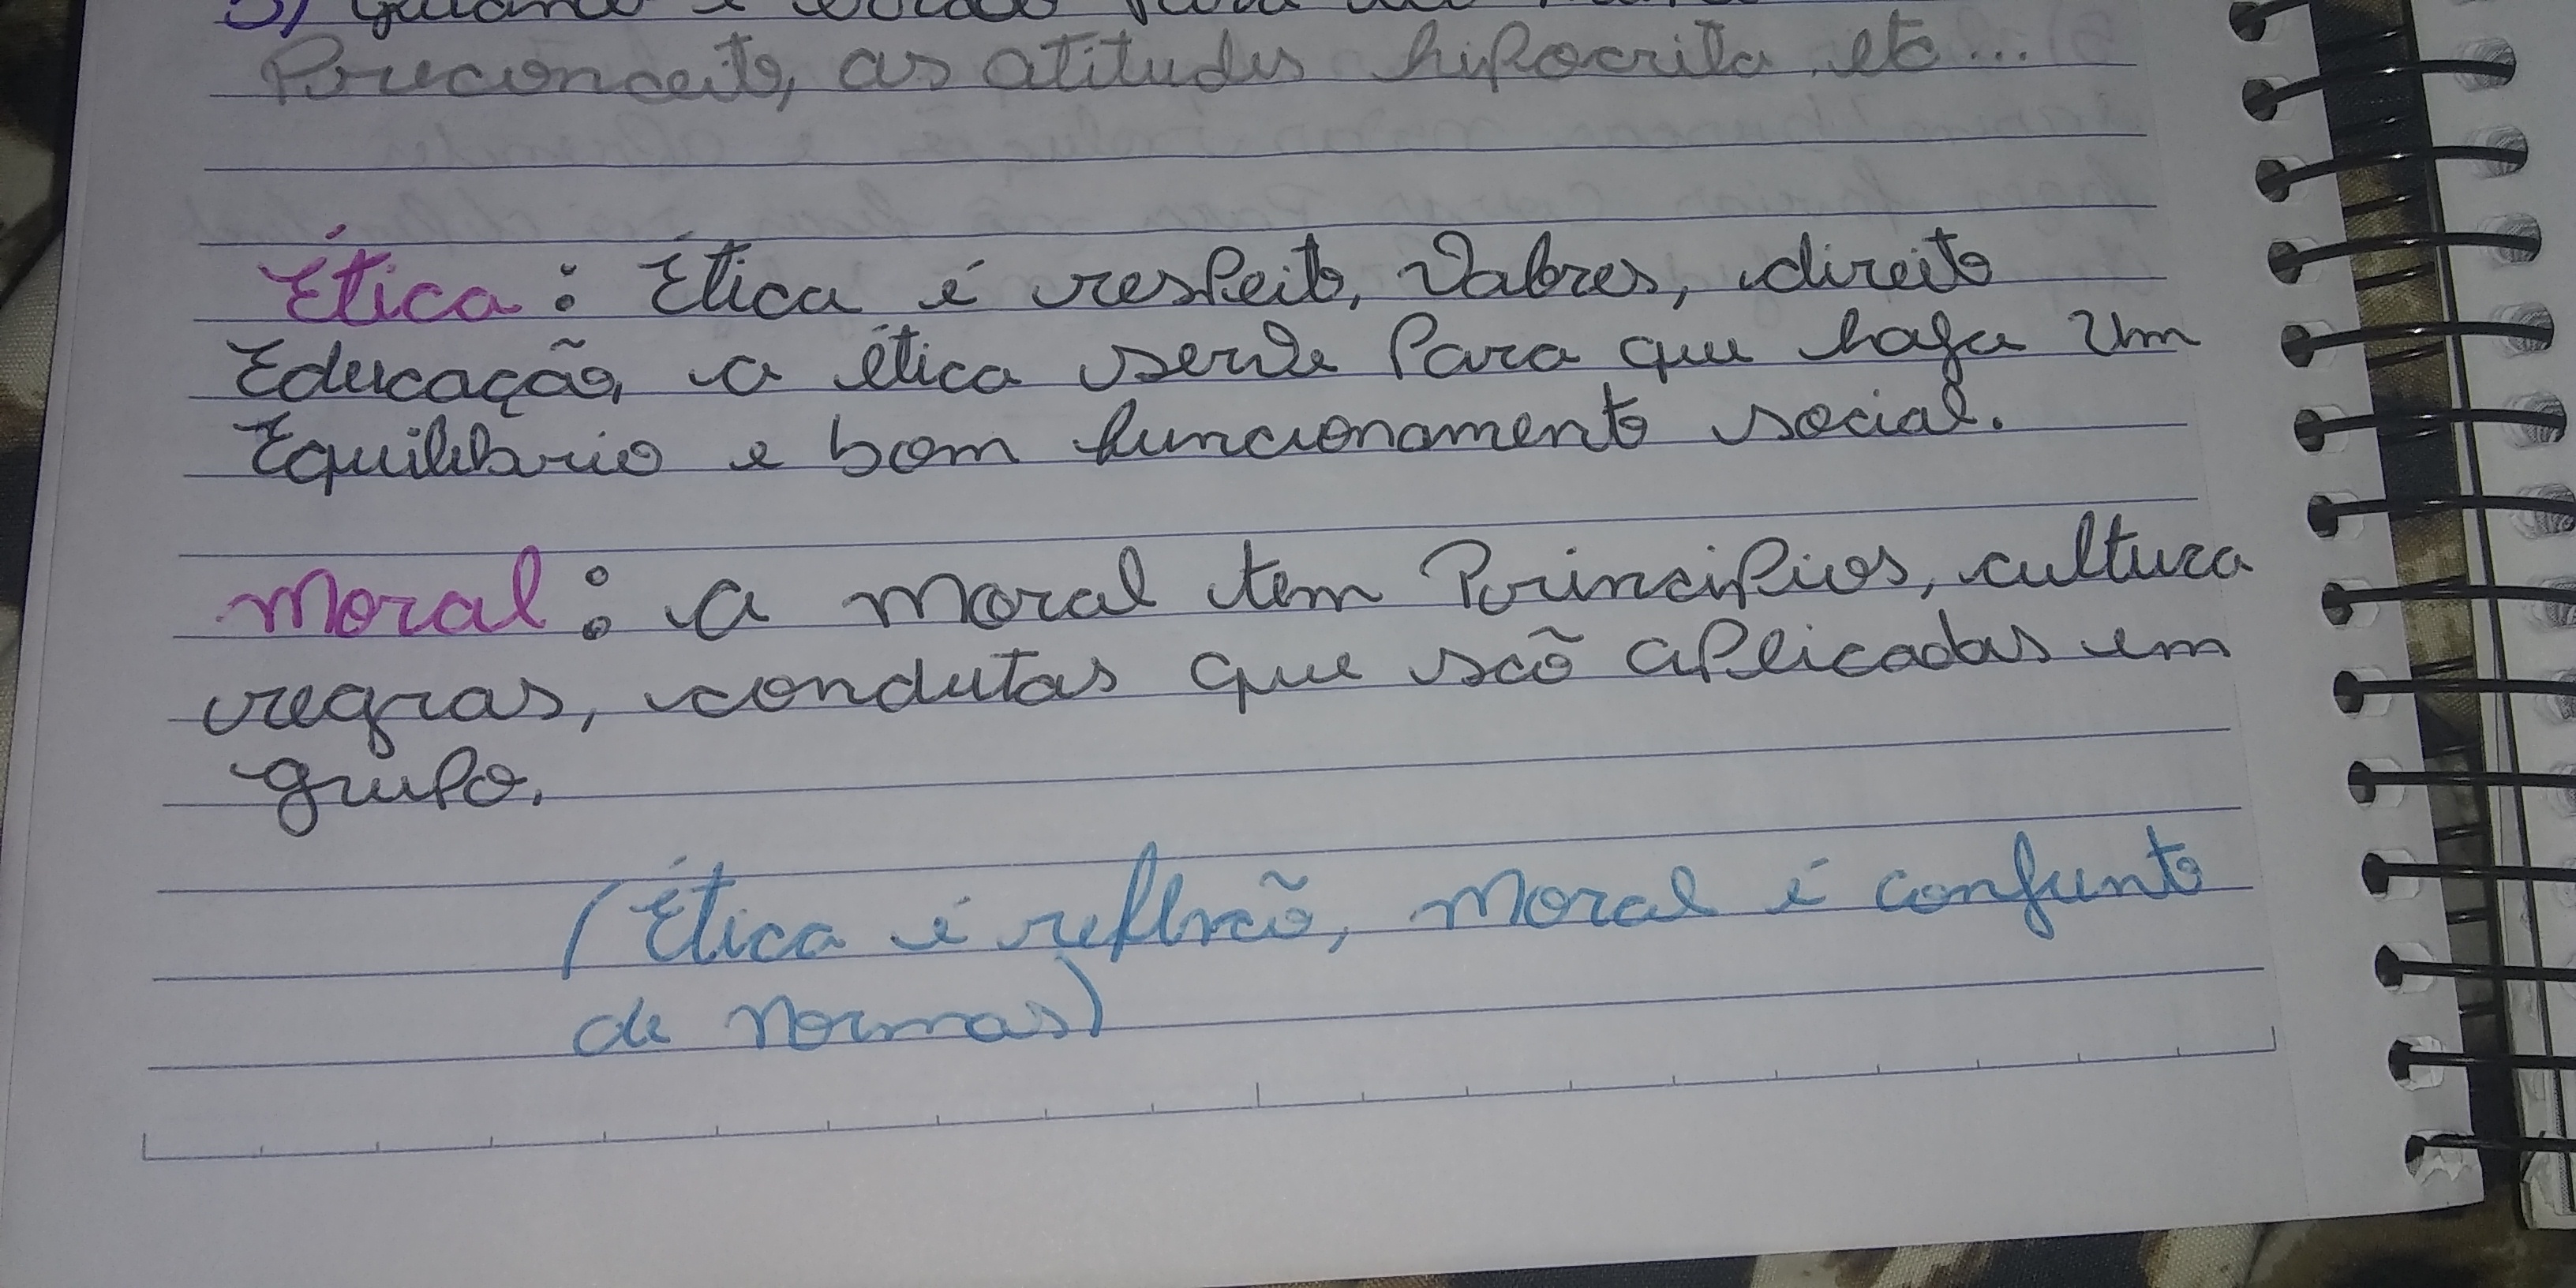 Preconceito, as atitudes hipocrita etc...
Ética: Ética é respeito, Valores, direito
Educação, a ética serve Para que haja um
Equilibrio e bom funcionamento social.
Moral: a moral tem Principios, cultura
regras, condutas que são aplicadas em
grupo.
(Ética é reflexão, Moral é conjunto
de Normas)